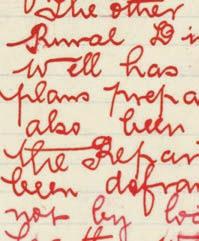 The other
Rural D i
Well has
plans prepa
also been
the Repair
been defra
not by lo